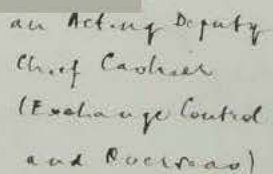 an Acting Deputy
Chief Cashier
(Exchange Control
and Overseas)